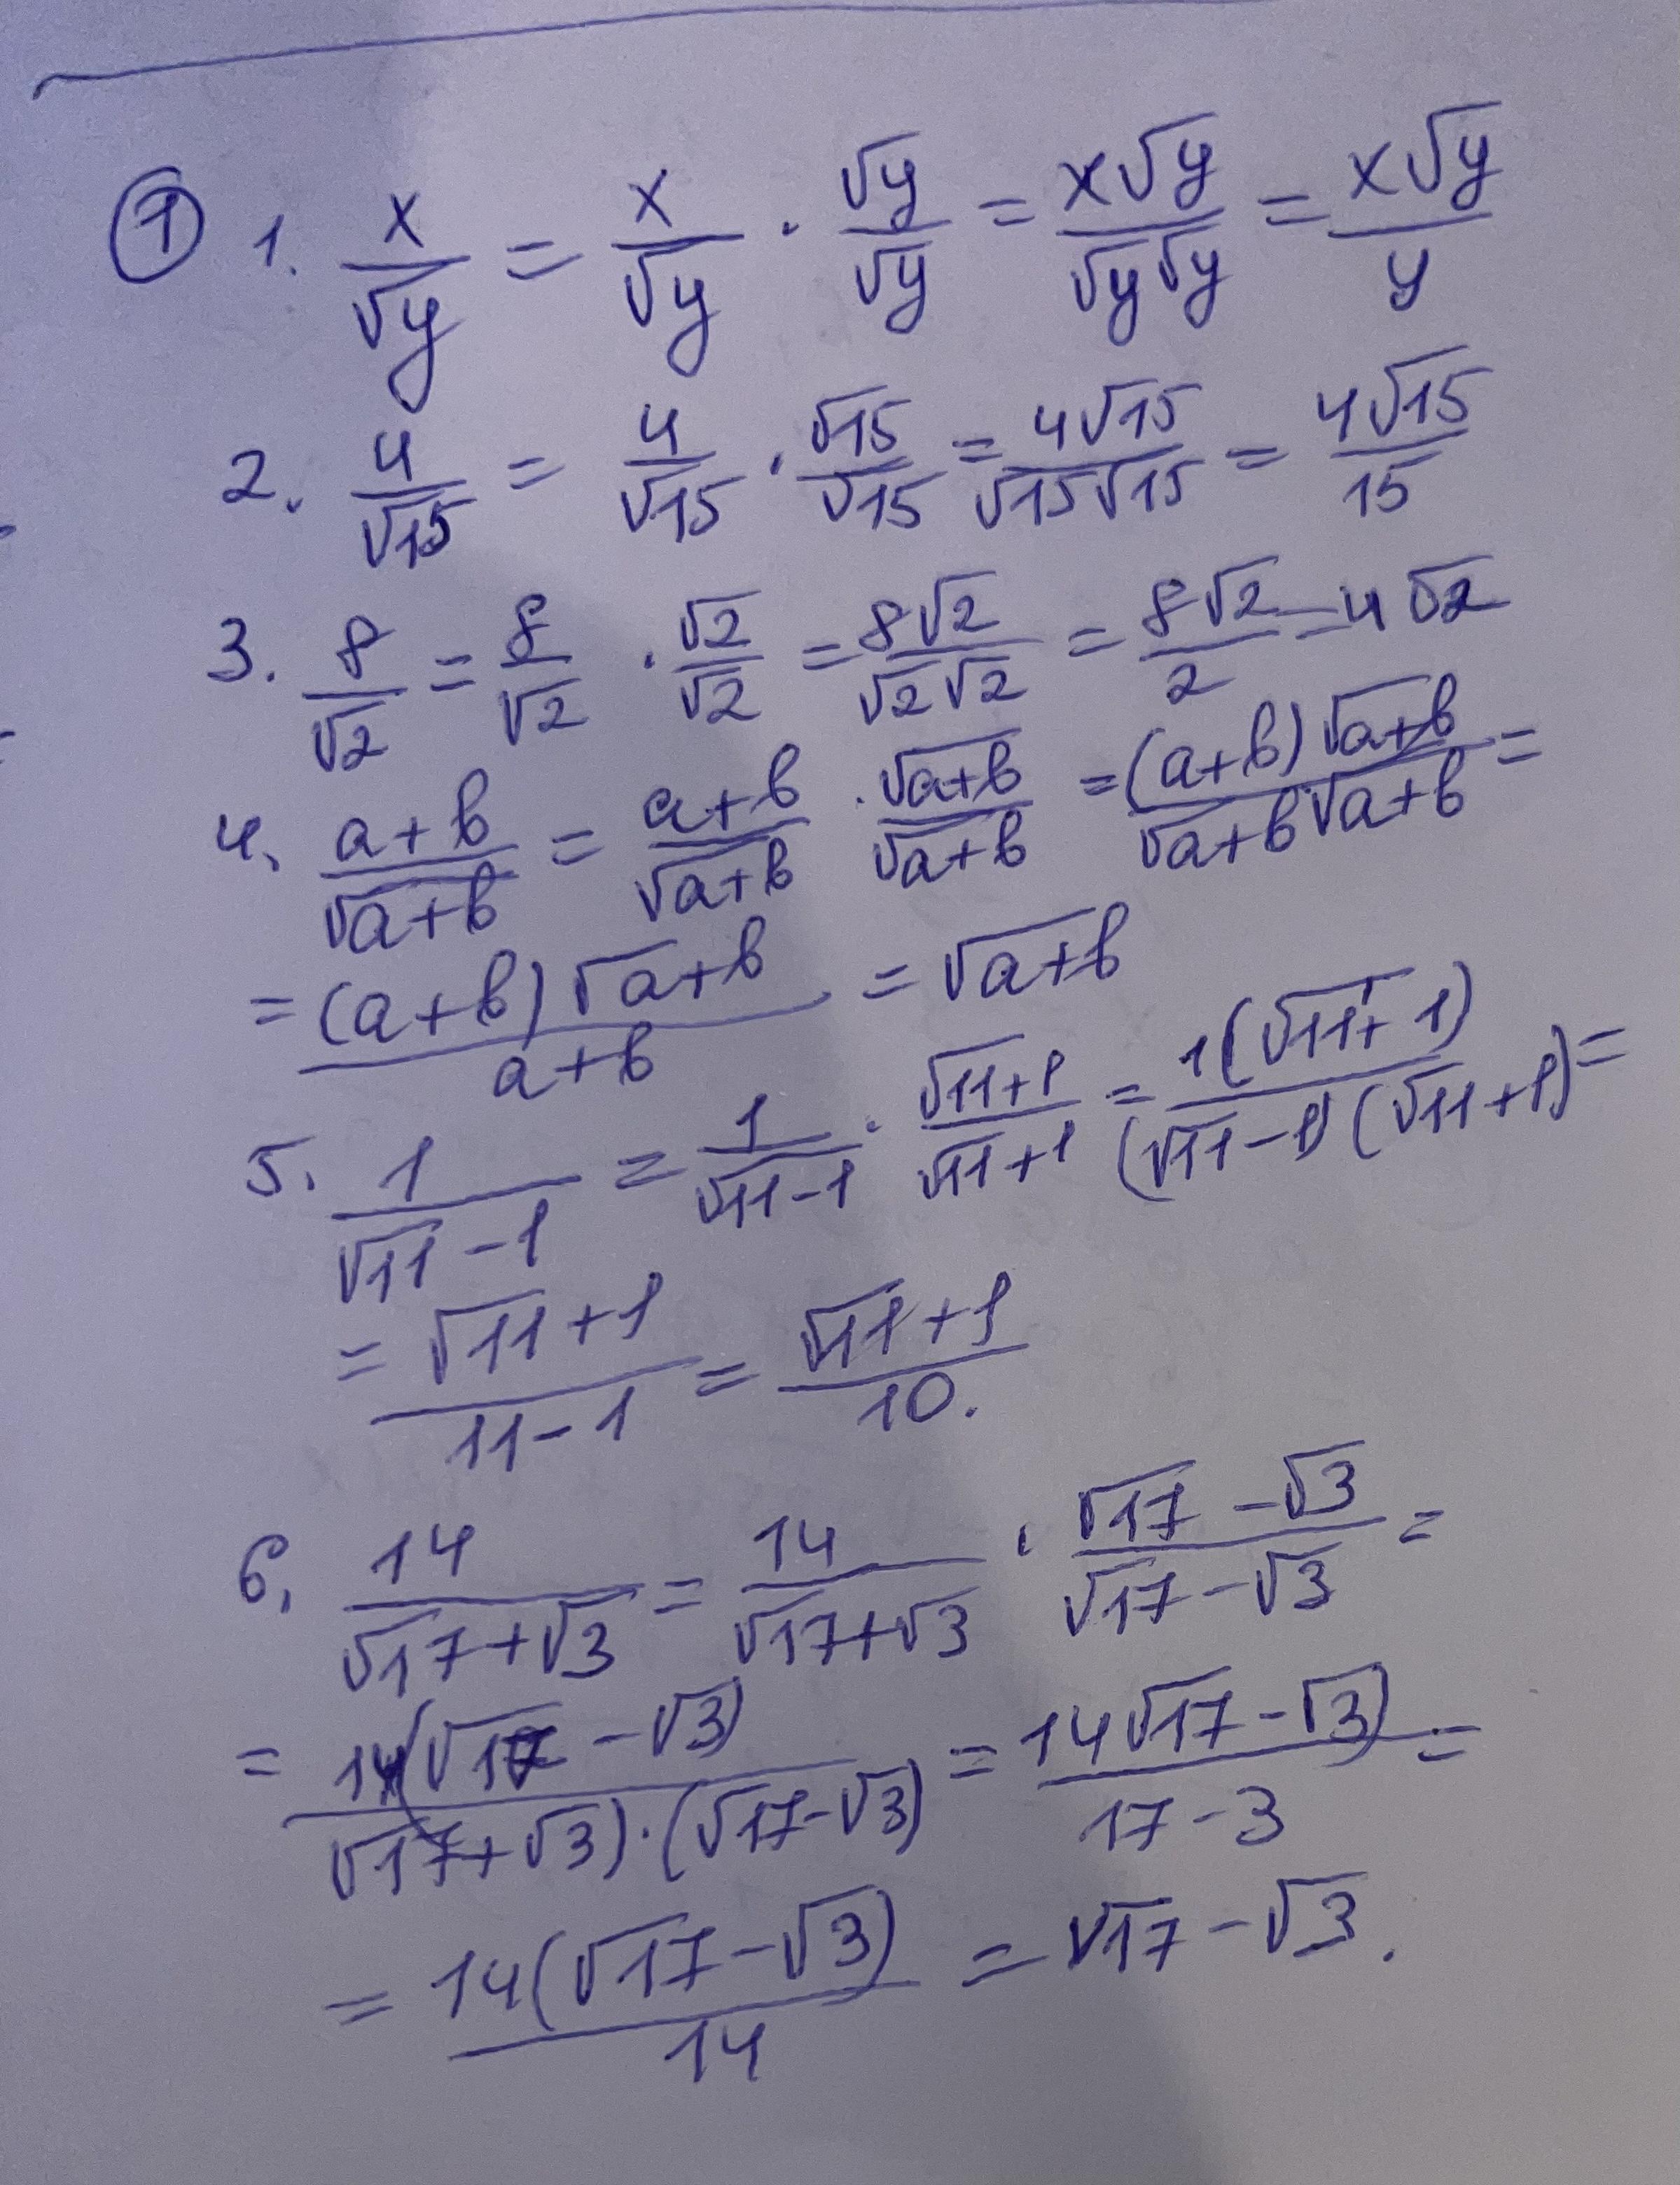 ① 1. x/√y = x/√y · √y/√y = x√y/√y√y = x√y/y
2. 4/√15 = 4/√15 · √15/√15 = 4√15/√15√15 = 4√15/15
3. 8/√2 = 8/√2 · √2/√2 = 8√2/√2√2 = 8√2/2 = 4√2
4. a+b/√a+b = a+b/√a+b · √a+b/√a+b = (a+b)√a+b/√a+b√a+b =
= (a+b)√a+b/a+b = √a+b
5. 1/√11-1 = 1/√11-1 · √11+1/√11+1 = 1(√11+1)/(√11-1)(√11+1) =
= √11+1/11-1 = √11+1/10.
6. 14/√17+√3 = 14/√17+√3 · √17-√3/√17-√3 =
= 14(√17-√3)/√17+√3)·(√17-√3) = 14√17-√3)/17-3 =
= 14(√17-√3)/14 = √17-√3.